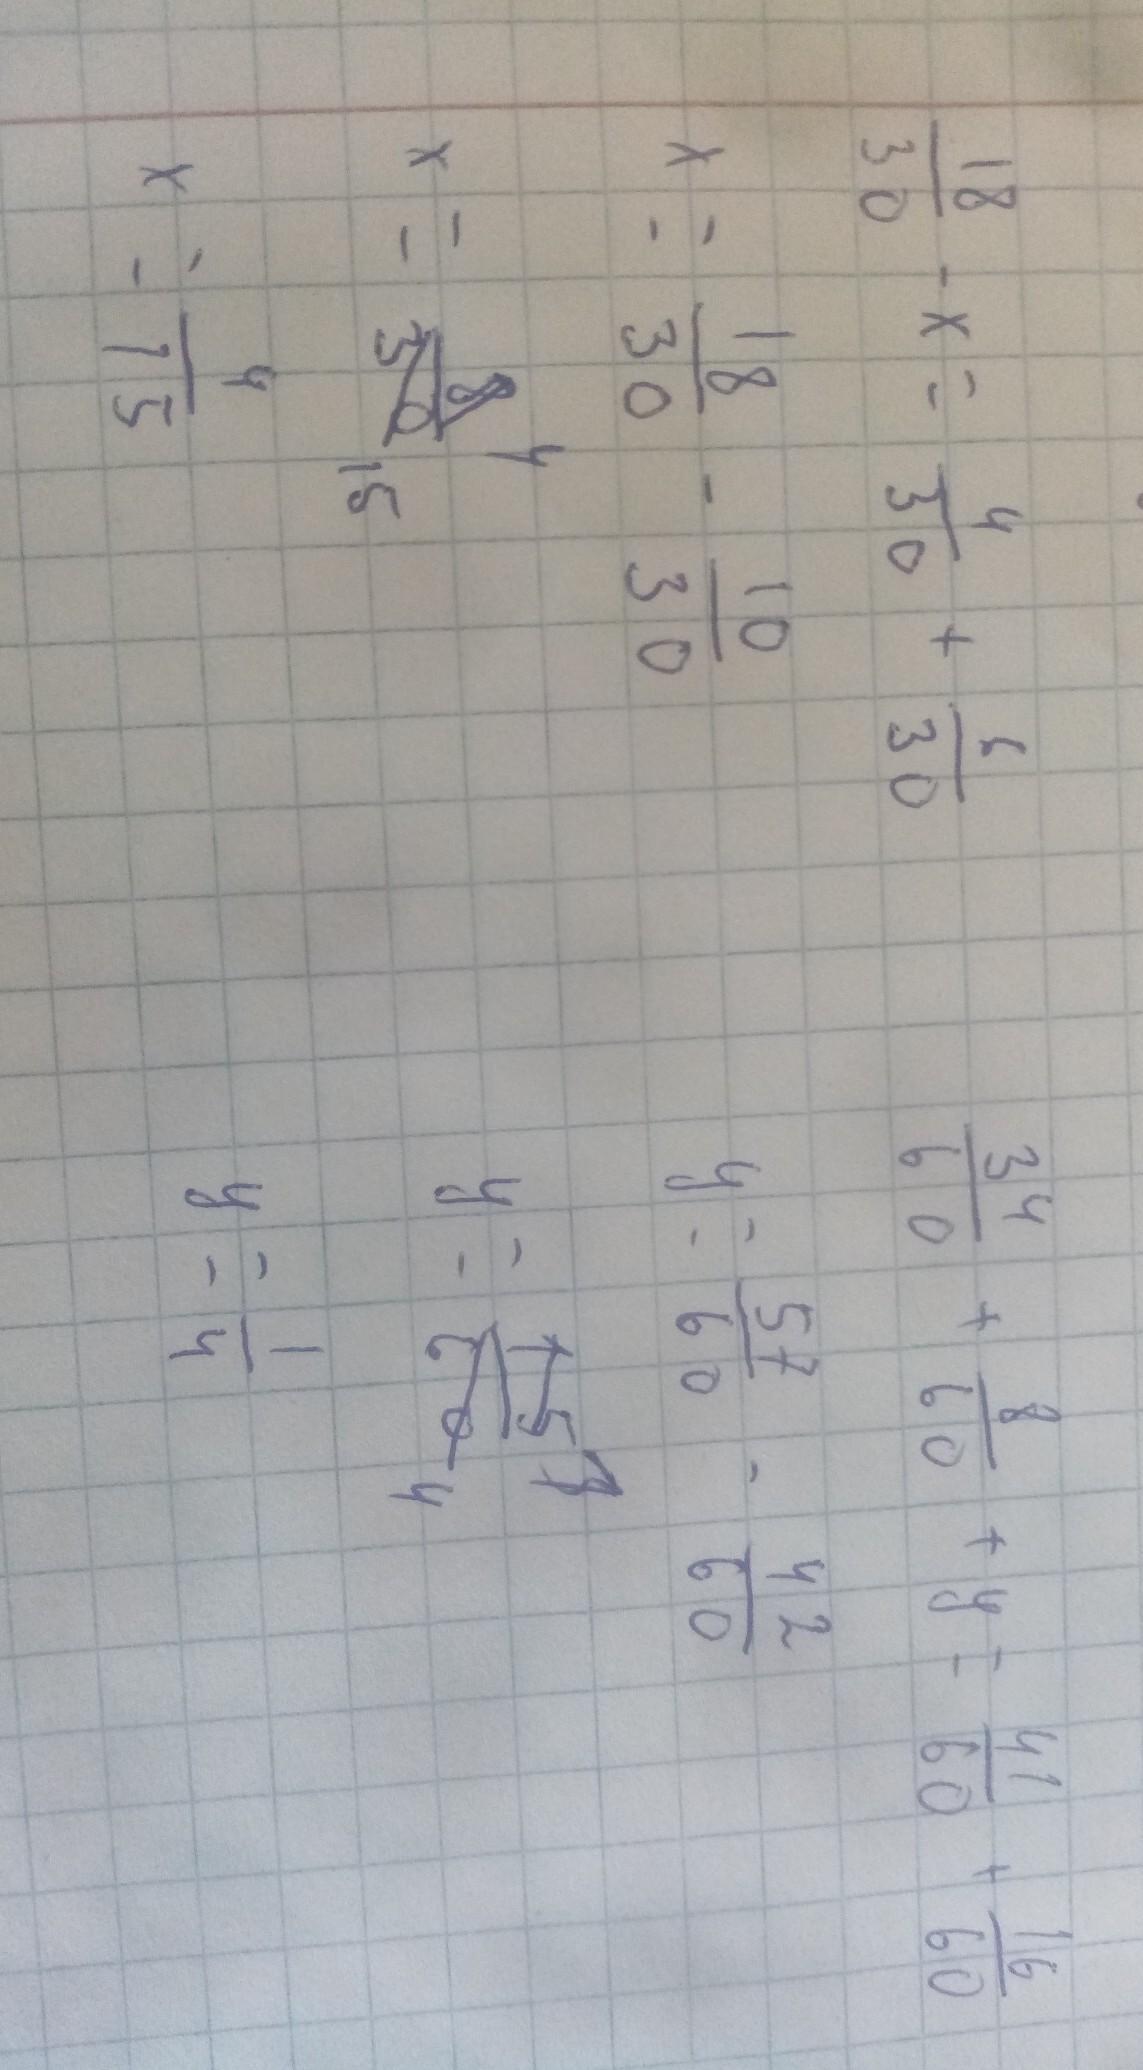 18/30 - x = 4/30 + 6/30
x = 18/30 - 10/30
x = 8/30 4 15
x = 4/15
34/60 + 8/60 + y = 41/60 + 16/60
y = 57/60 - 42/60
y = 15/60 1 4
y = 1/4